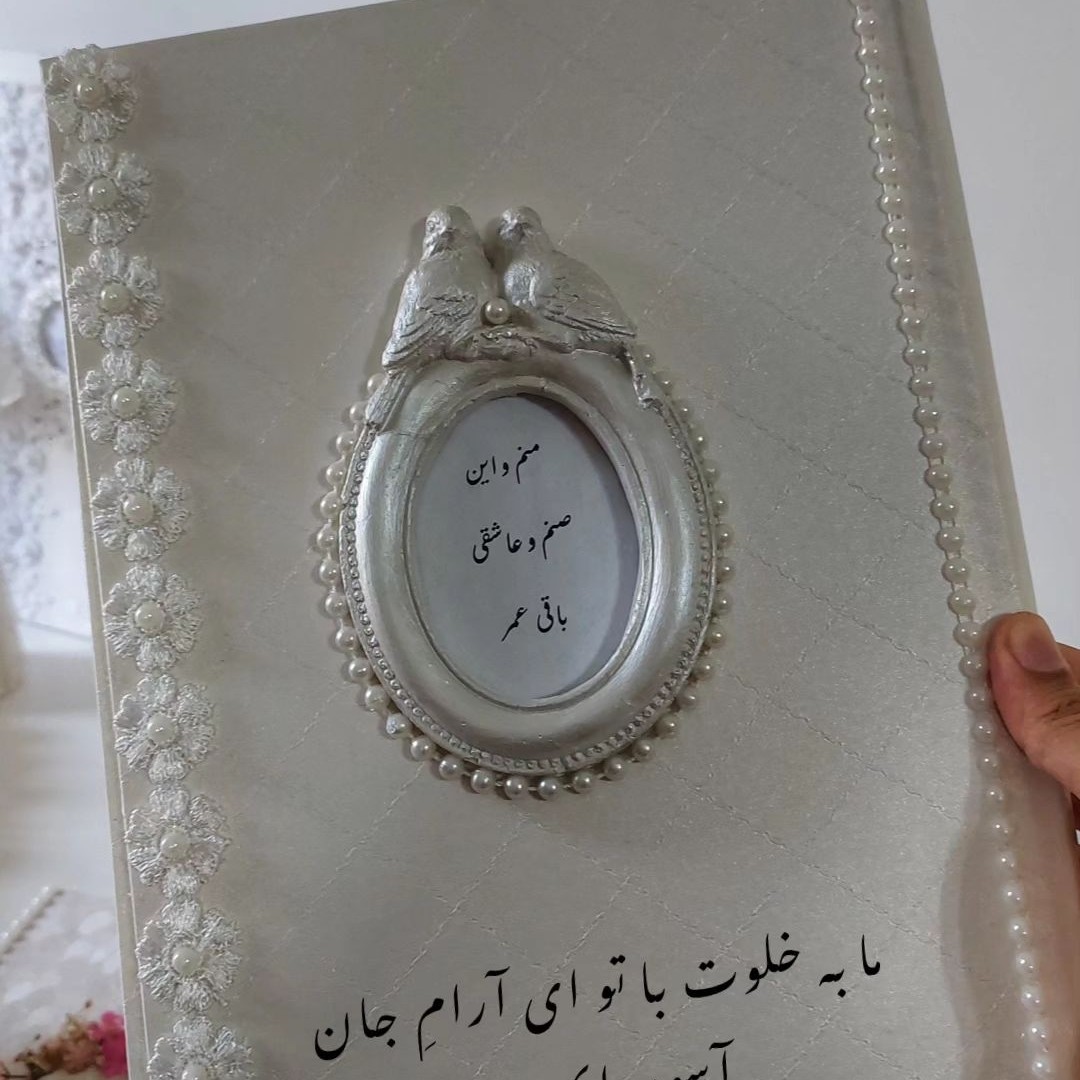 منم و این
صنم و عاشقی
باقی عمر
ما به خلوت با تو ای آرامِ جان